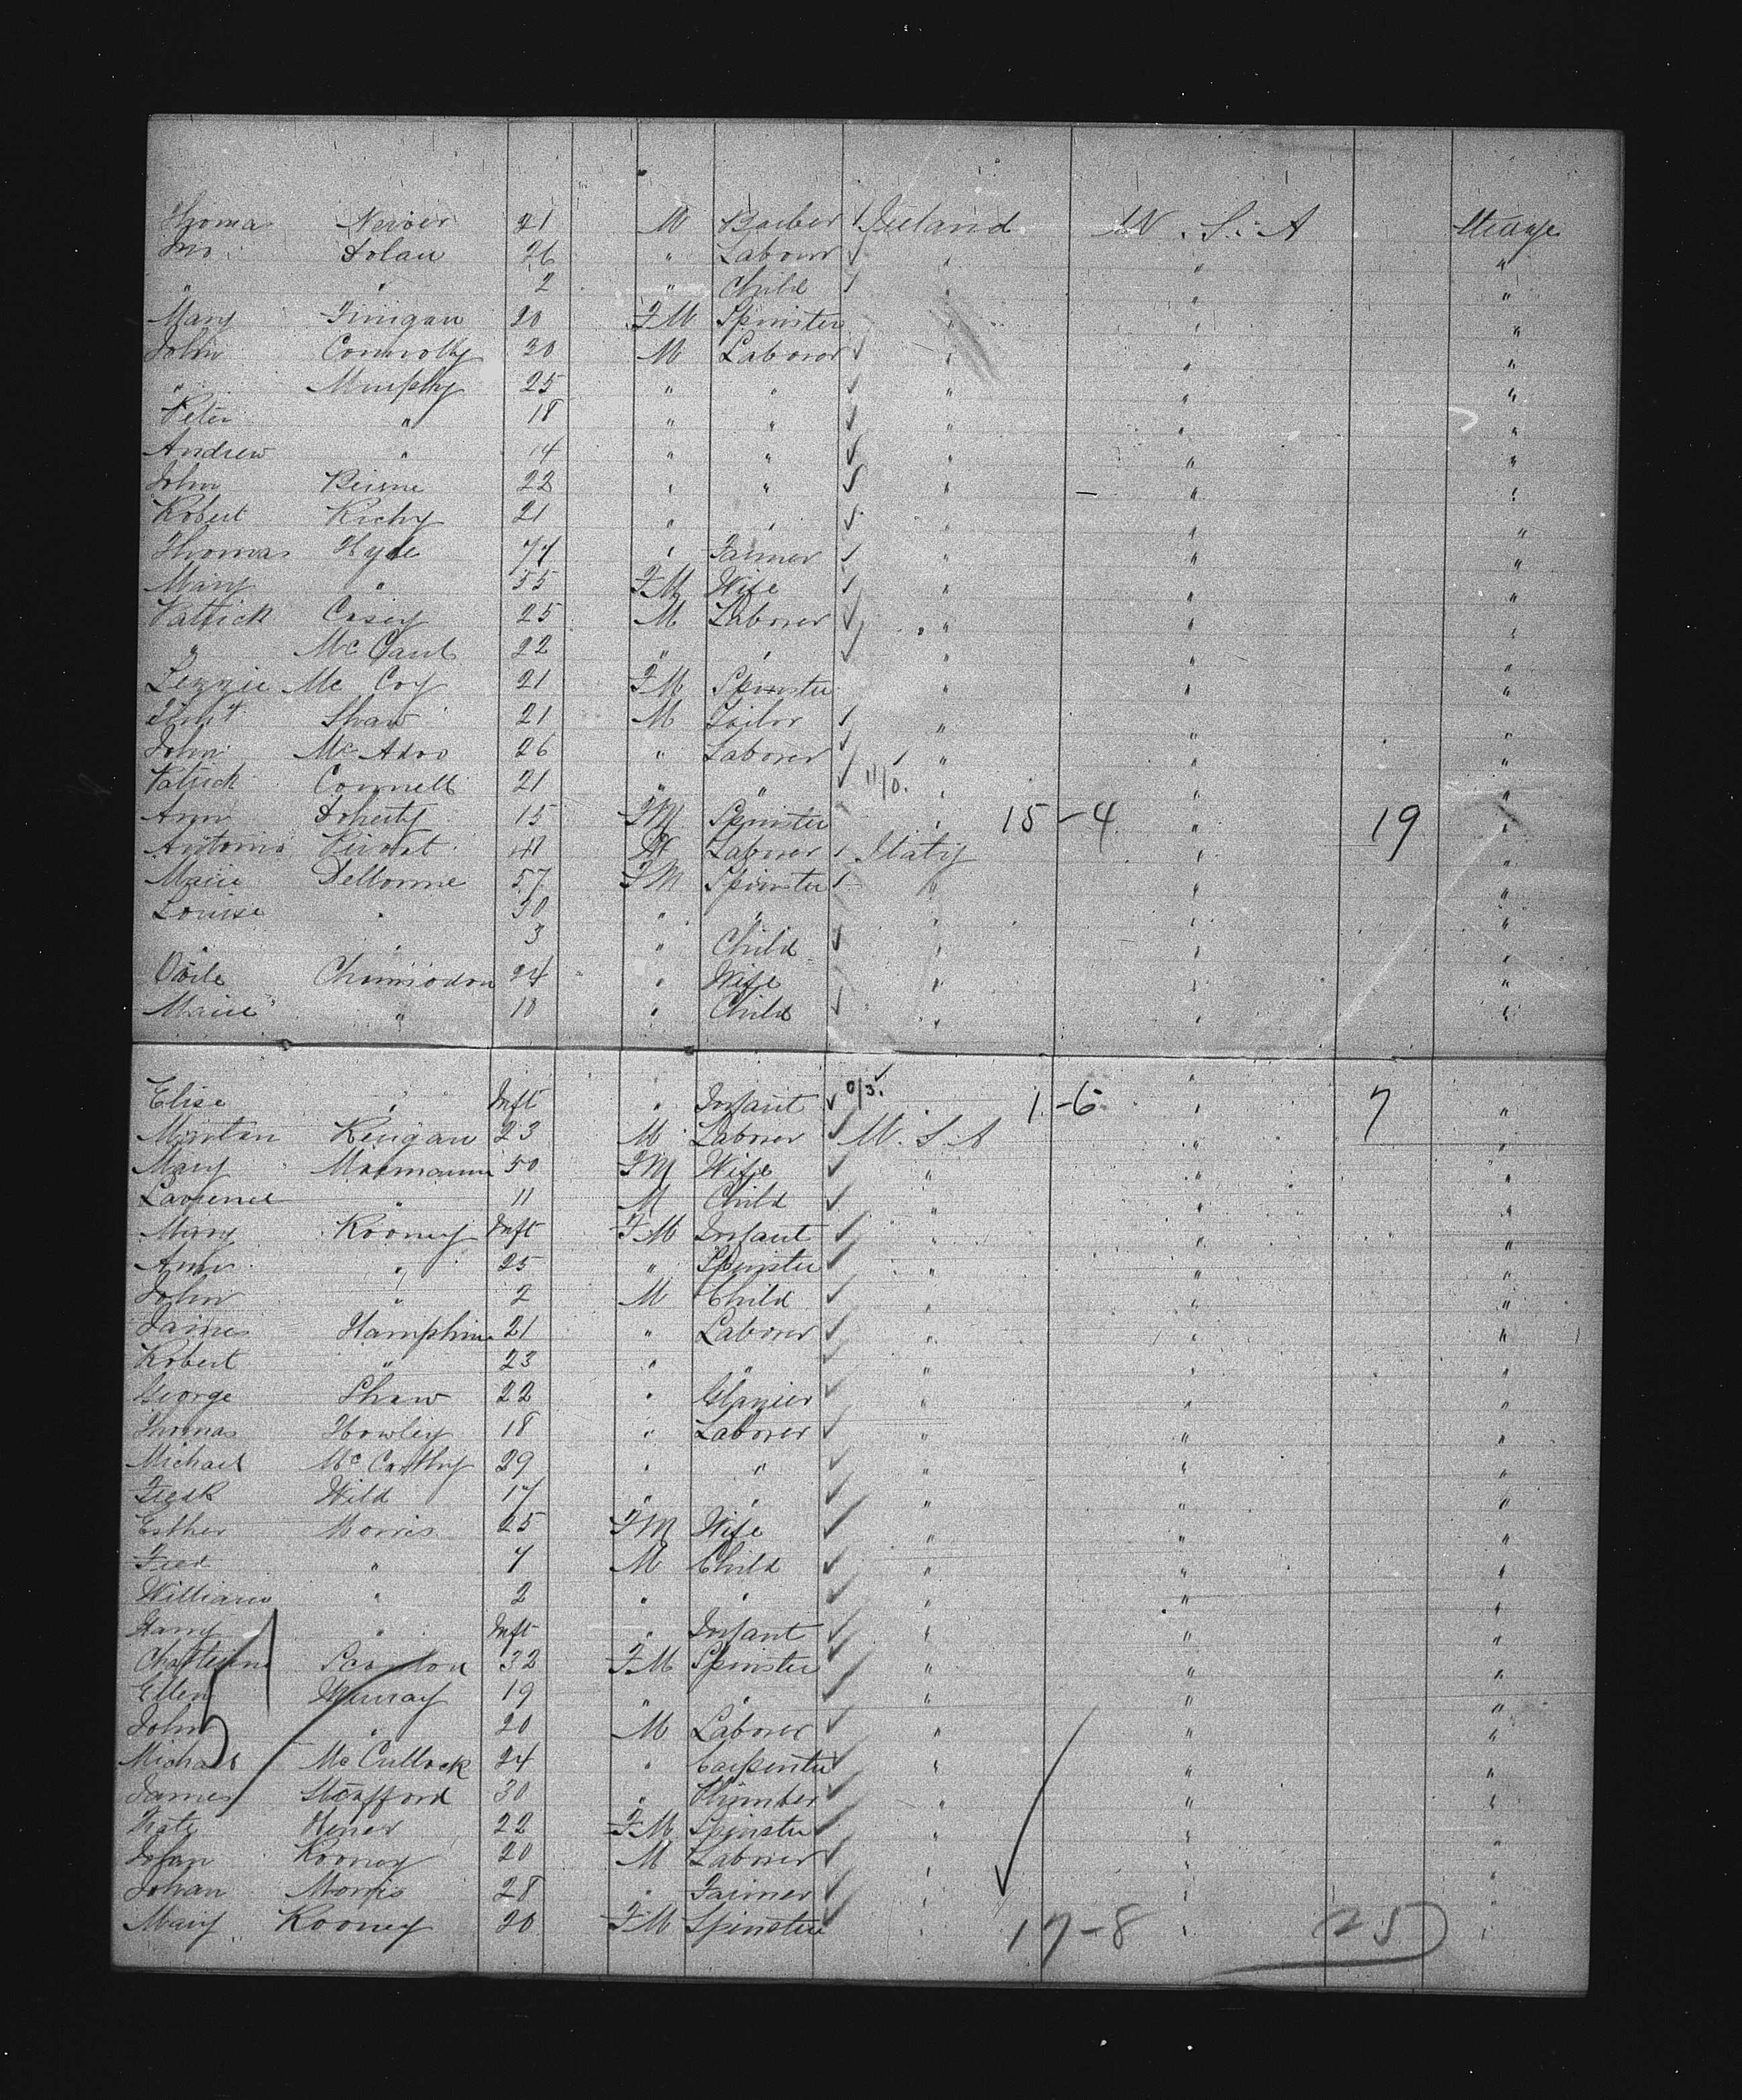 Thoma Nevier 21 M Barber Ireland U.S.A Steage
Jno. Dolan 26 " Labour " " "
" " 2 " Child " " "
Mary Finigan 20 FM Spinster " " "
John Connolly 30 M Laboror " " "
" Murphy 25 " " " " "
Peter " 18 " " " " "
Andrew " 14 " " " " "
John Beirne 22 " " " " "
Robert Richy 21 " " " " "
Thomas Hyde 74 " Farmer " " "
Mary " 55 FM Wife " " "
Patrick Casey 25 M Laborer " " "
" Mc 22 " " " " "
Lezzie Mc Coy 21 FM Spinster " " "
Shaw 21 M Tailor " " "
John Mc Adoo 26 " Laborer " " "
Patrick Connell 21 " " 11/0. " " "
Ann Doherty 15 FM Spinster " 15-4 " 19 "
Antonio 41 M Laboror Italy " "
Marie Delbonne 57 FM Spinster " " "
Louise " 30 " " " " "
" " 3 " Child " " "
24 " Wife " " "
Marie " 10 " Child " " "
Elise " Inft " Infant 0/3. 1-6 " 7 "
Keugan 23 M Laboror U.S.A " "
Mary 50 FM Wife " " "
Laurence " 11 M Child " " "
Mary Rooney Inft FM Infant " " "
Ann " 25 " Spinster " " "
John " 2 M Child " " "
James Hamphine 21 " Laborer " " "
Robert " 23 " " " " "
George Shaw 22 " Glazier " " "
Thomas Howley 18 " Laborer " " "
Michael Mc Carthy 29 " " " " "
Fredk Wild 17 " " " " "
Esther Morris 25 FM Wife " " "
Fred " 7 M Child " " "
William " 2 " " " " "
Harry " Inft " Infant " " "
Scanlon 32 FM Spinster " " "
Ellen Murray 19 " " " " "
John " 20 M Laborer " " "
Michael Mc Cullock 24 " Carpenter " " "
James Stafford 30 " Plumber " " "
Kate 22 FM Spinster " " "
Johan Rooney 20 M Laborer " " "
Johan Morris 28 " Farmer " " "
Mary Rooney 20 FM Spinster " 17-8 " 25 "